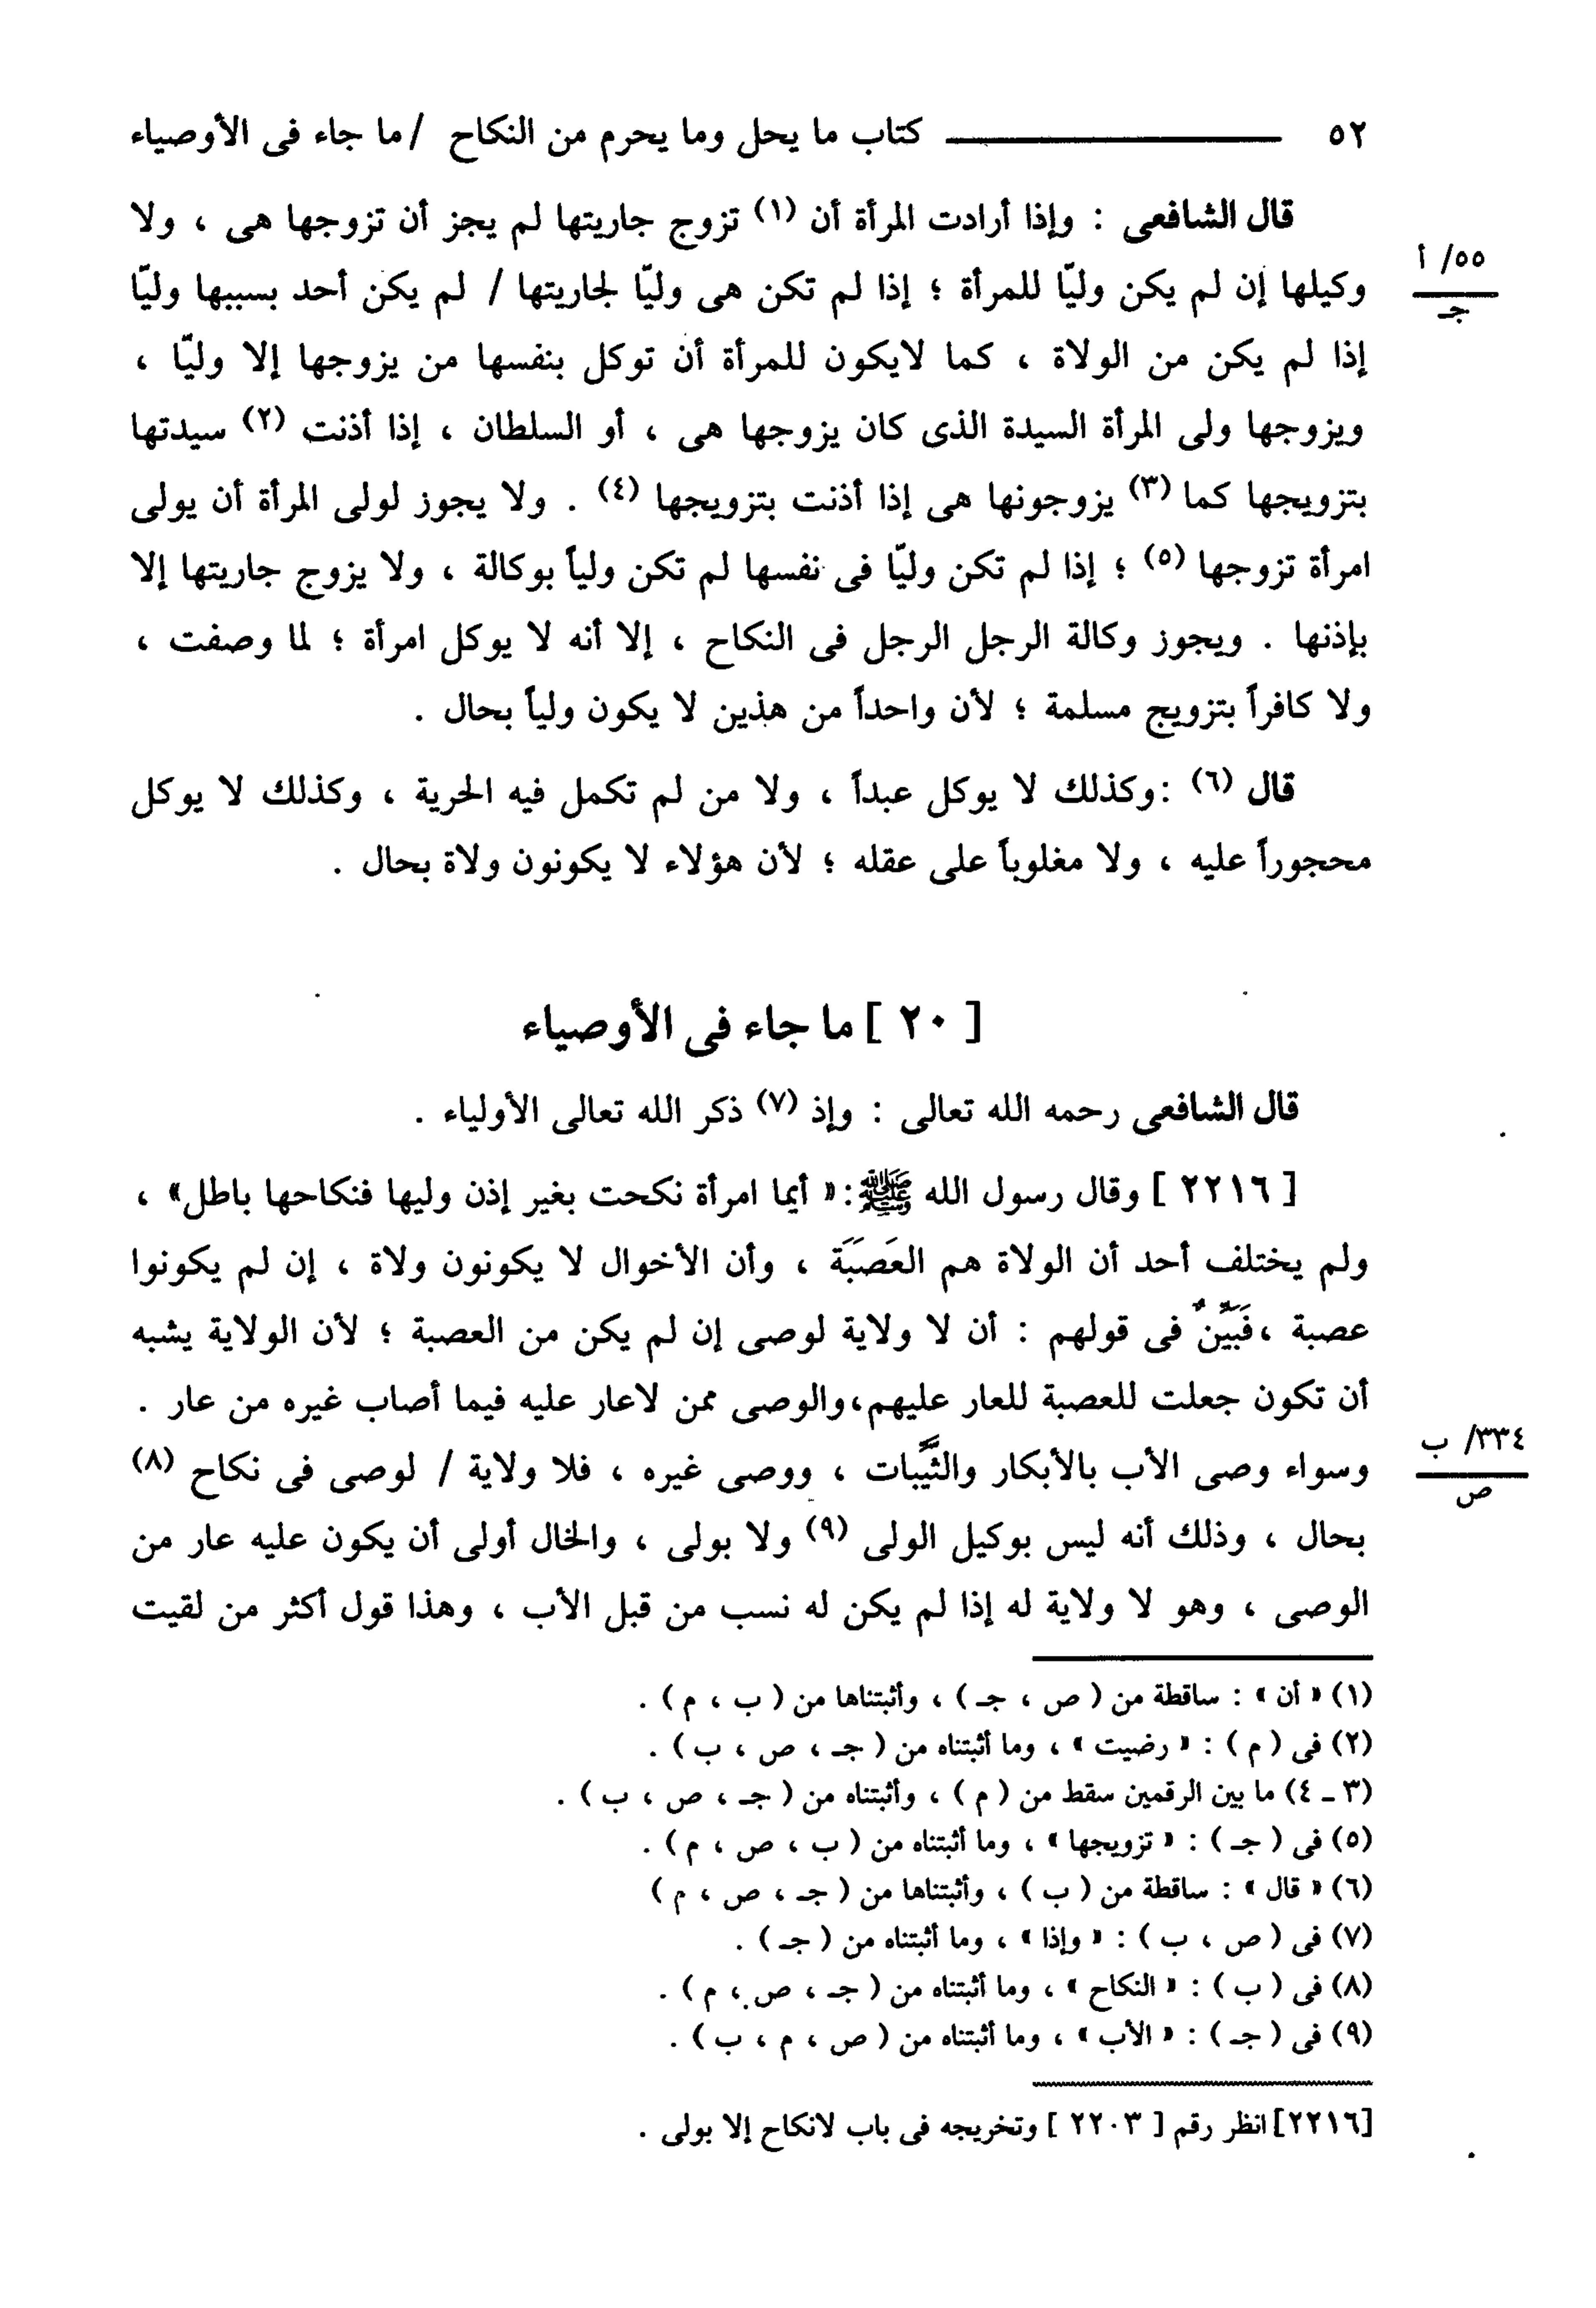 ٥٢ كتاب ما يحل وما يحرم من النكاح / ما جاء فى الأوصياء
قال الشافعى : وإذا أرادت المرأة أن (١) تزوج جاريتها لم يجز أن تزوجها هى ، ولا
وكيلها إن لم يكن وليّا للمرأة ؛ إذا لم تكن هى وليّا لجاريتها / لم يكن أحد بسببها وليّا
٥٥/ أ
جـ
إذا لم يكن من الولاة ، كما لايكون للمرأة أن توكل بنفسها من يزوجها إلا وليّا ،
ويزوجها ولى المرأة السيدة الذى كان يزوجها هى ، أو السلطان ، إذا أذنت (٢) سيدتها
بتزويجها كما (٣) يزوجونها هى إذا أذنت بتزويجها (٤) . ولا يجوز لولى المرأة أن يولى
امرأة تزوجها (٥) ؛ إذا لم تكن وليّا فى نفسها لم تكن ولياً بوكالة ، ولا يزوج جاريتها إلا
بإذنها . ويجوز وكالة الرجل الرجل فى النكاح ، إلا أنه لا يوكل امرأة ؛ لما وصفت ،
ولا كافراً بتزويج مسلمة ؛ لأن واحداً من هذين لا يكون ولياً بحال .
قال (٦) :وكذلك لا يوكل عبداً ، ولا من لم تكمل فيه الحرية ، وكذلك لا يوكل
محجوراً عليه ، ولا مغلوباً على عقله ؛ لأن هؤلاء لا يكونون ولاة بحال .
[ ٢٠ ] ما جاء فى الأوصياء
قال الشافعى رحمه الله تعالى : وإذ (٧) ذكر الله تعالى الأولياء .
[ ٢٢١٦ ] وقال رسول الله ﷺ: « أيما امرأة نكحت بغير إذن وليها فنكاحها باطل» ،
ولم يختلف أحد أن الولاة هم العَصَبَة ، وأن الأخوال لا يكونون ولاة ، إن لم يكونوا
عصبة ،فَبَيِّنٌ فى قولهم : أن لا ولاية لوصى إن لم يكن من العصبة ؛ لأن الولاية يشبه
أن تكون جعلت للعصبة للعار عليهم،والوصى ممن لاعار عليه فيما أصاب غيره من عار .
وسواء وصى الأب بالأبكار والثَّيِّبات ، ووصى غيره ، فلا ولاية / لوصى فى نكاح (٨)
٣٣٤/ ب
ص
بحال ، وذلك أنه ليس بوكيل الولى (٩) ولا بولى ، والخال أولى أن يكون عليه عار من
الوصى ، وهو لا ولاية له إذا لم يكن له نسب من قبل الأب ، وهذا قول أكثر من لقيت
(١) « أن » : ساقطة من ( ص ، جـ ) ، وأثبتناها من ( ب ، م ) .
(٢) فى ( م ) : « رضيت » ، وما أثبتناه من ( جـ ، ص ، ب ) .
(٣ ـ ٤) ما بين الرقمين سقط من ( م ) ، وأثبتناه من ( جـ ، ص ، ب ) .
(٥) فى ( جـ ) : « تزويجها » ، وما أثبتناه من ( ب ، ص ، م ) .
(٦) « قال » : ساقطة من ( ب ) ، وأثبتناها من ( جـ ، ص ، م )
(٧) فى ( ص ، ب ) : « وإذا » ، وما أثبتناه من ( جـ ) .
(٨) فى ( ب ) : « النكاح » ، وما أثبتناه من ( جـ ، ص ، م ) .
(٩) فى ( جـ ) : « الأب » ، وما أثبتناه من ( ص ، م ، ب ) .
[٢٢١٦] انظر رقم [ ٢٢٠٣ ] وتخريجه فى باب لانكاح إلا بولى .